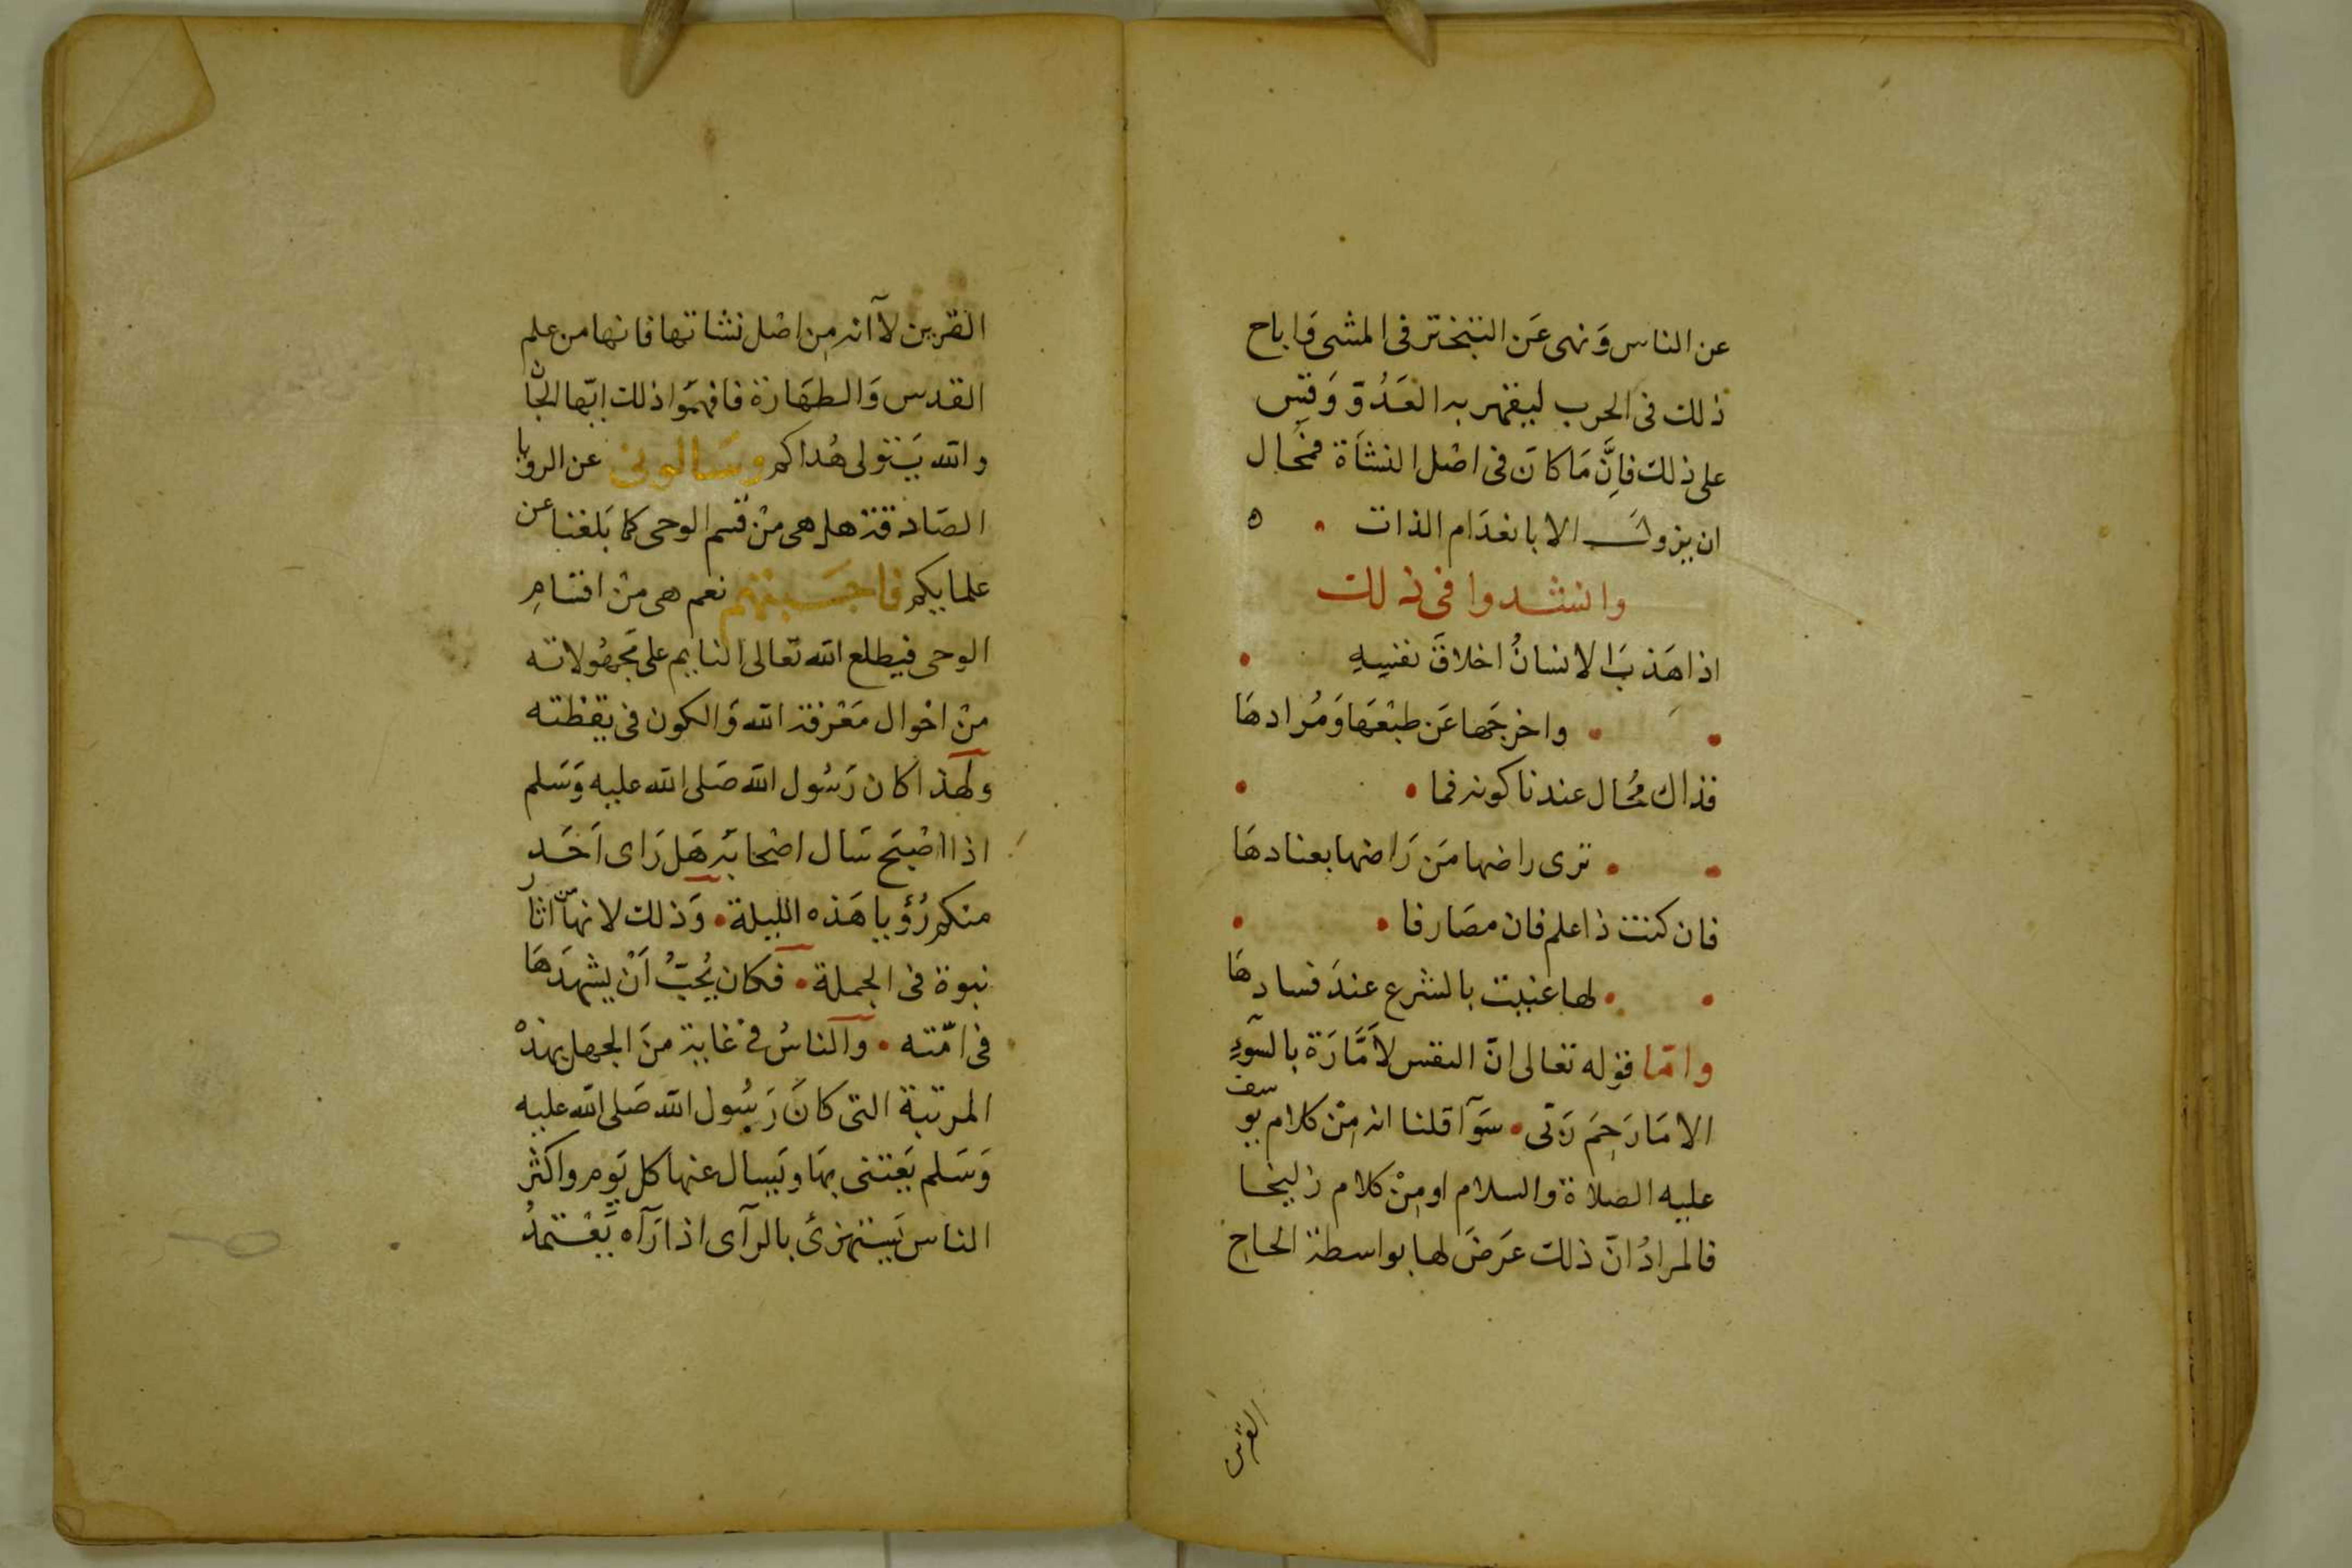 عن الناس وَنهى عَن التبختر فى المشى وَاباح
ذلك فى الحرب ليقهر به العَدُوّ وَقِس
على ذلك فاِنَّ مَا كانَ فى اصْل النشأة فمحَال
ان يزولَ الا بانعدَام الذات • ه
وانشدوا فى ذلك
اذا هَذبَ الانسانُ اخلاقَ نفسِهِ •
• • واخرجَها عَن طبْعهَا وَمُرادهَا
فذاك محُال عندنا كونه فما • •
• • ترى راضها مَن رَاضها بعنادهَا
فان كنت ذا علم فان مصَارفا • •
• • لها عنيت بالشرع عندَ فسادهَا
وامّا قوله تعالى انّ النفس لاَمَّارَة بالسّوءِ
الا مَا رَحِمَ رَبّى • سَوآ قلنا انه مِنْ كلام يوسف
عليه الصلاة والسلام او مِنْ كلام زليخا
فالمرادُ انّ ذلك عَرَضَ لها بواسطة الحاح
القرين
القرين لآ انه مِن اصْل نشاتها فانها من علم
القدس وَالطهَارَة فافهمَوا ذلك ايّها الجان
والله يَتولى هُداكم وسَالونى عن الرويا
الصَادقة هل هى مِنْ قسم الوحى كما بَلغنا عن
علمايكم فاجَبتهم نعم هى مِنْ اقسَامِ
الوحى فيطلع الله تعالى النايم على مَجهُولاته
مِنْ احْوال مَعْرفة الله وَالكون فى يقظته
ولهَذا كان رَسُول الله صَلى الله عليه وَسَلم
اذا اصْبَح سَال اصْحابَه هَل رَاى اَحَد
منكم رُؤيا هَذه الليلة • وَذلك لانهَا مِن اثار
نبوة فى الجملة • فكان يُحبّ اَنْ يشهدَهَا
فى امّته • والناسُ فى غاية منَ الجهل بهذه
المرتبة التى كانَ رَسُول الله صَلى الله عليه
وَسَلم يَعتنى بهَا ويَسال عنها كل يَوم واكثر
الناس يَستهزئ بالرآى اذا رَآه يَعْتمدُ